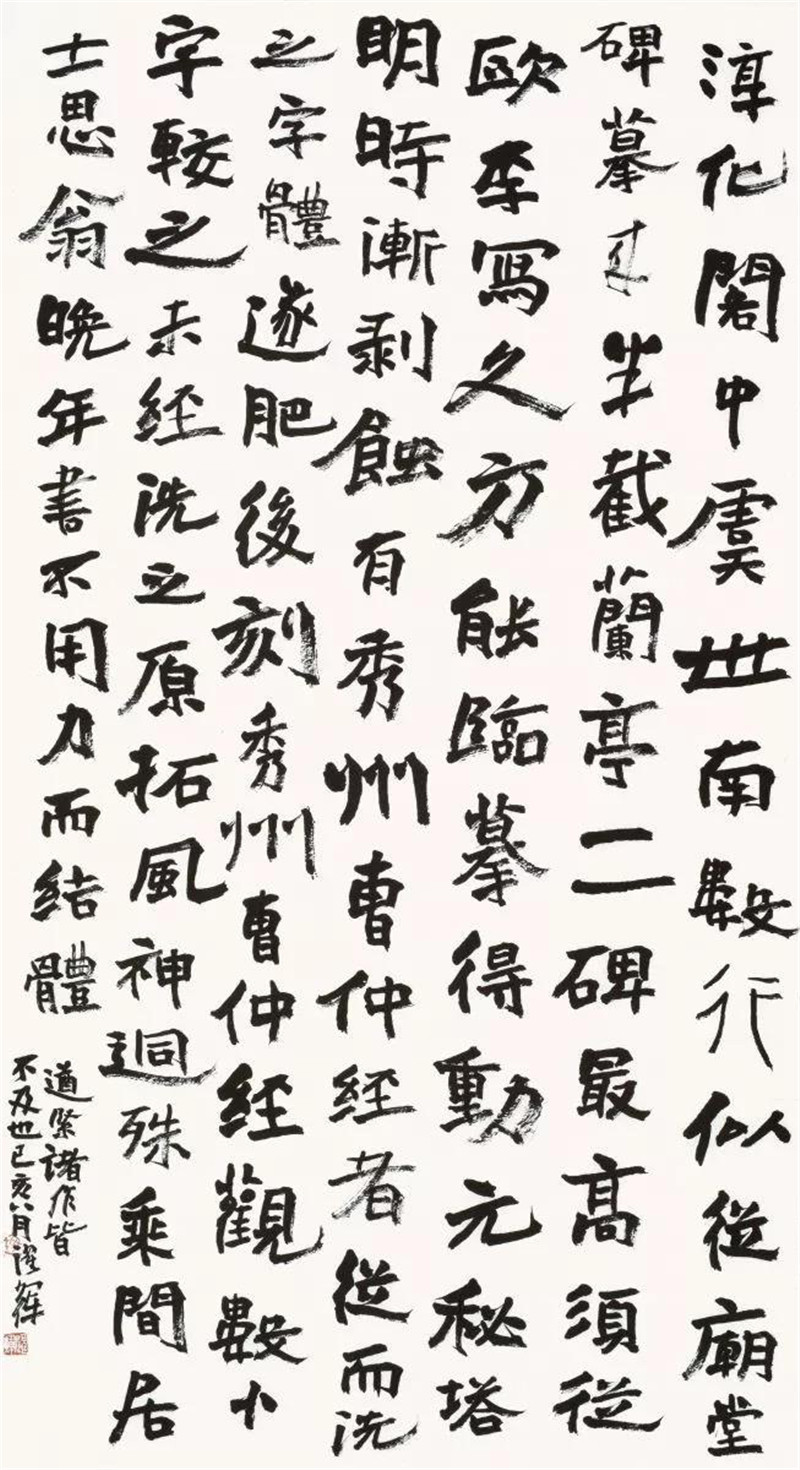 淳化閣中虞世南數行似從廟堂
碑摹来半截蘭亭二碑最高須從
歐李寫久方能臨摹得動元秘塔
明時漸剥蝕有秀州曹仲経者從而洗
之字體遂肥後刻秀州曹仲経觀數小
字較之未経洗之原拓風神迥殊乘間居
士思翁晚年書不用力而結體
遒緊諸作皆
不及也己亥八月